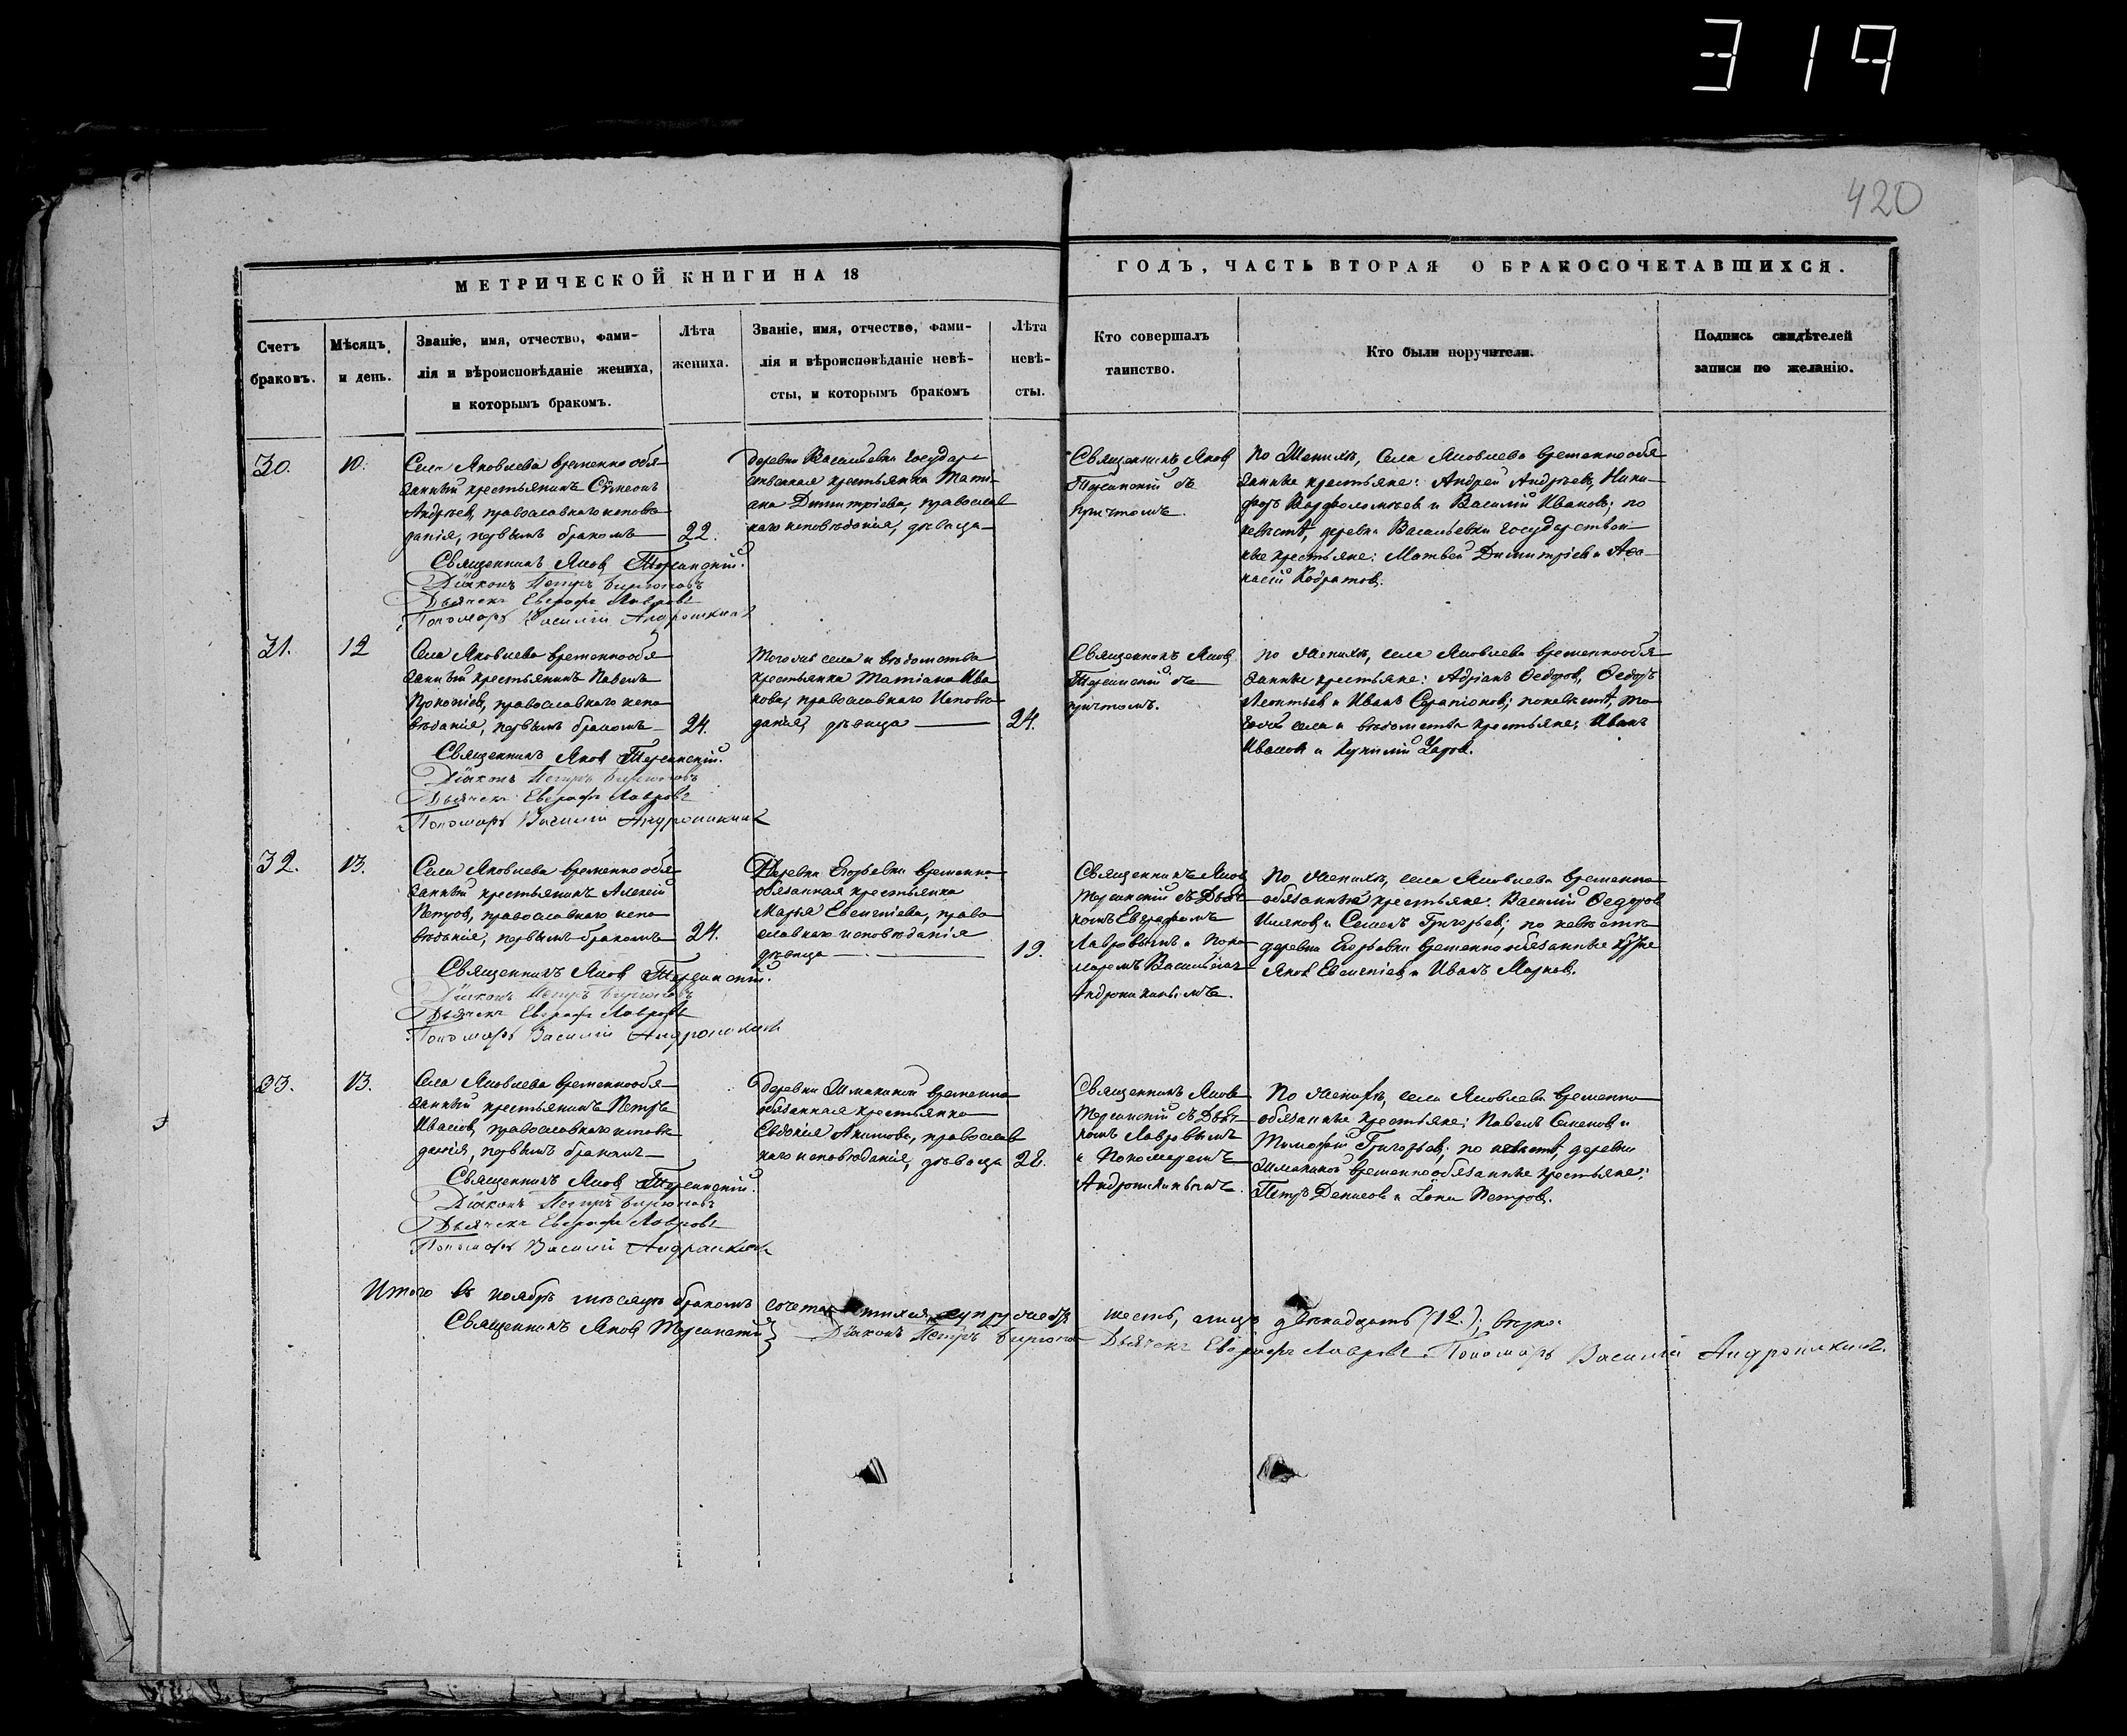 319
420
МЕТРИЧЕСКОЙ КНИГИ НА 18
ГОДЪ, ЧАСТЬ ВТОРАЯ О БРАКОСОЧЕТАВШИХСЯ.
Счетъ
браковъ.
Мѣсяцъ
и день.
Званіе, имя, отчество, фами-
лія и вѣроисповѣданіе жениха,
и которымъ бракомъ.
Лѣта
жениха.
Званіе, имя, отчество, фами-
лія и вѣроисповѣданіе невѣ-
сты, и которымъ бракомъ
Лѣта
невѣ-
сты.
Кто совершалъ
таинство.
Кто были поручители.
Подпись свидѣтелей
записи по желанію.
30.
10.
Села Яковлева временнообя-
занный крестьянинъ Сѵмеонъ
Андреевъ, православнаго исповѣ-
данія, первымъ бракомъ
22.
Священникъ Яковъ
Діаконъ Петръ Бирюковъ
Дьячекъ Евграфъ Лавровъ
Пономарь Василій Андроникинъ
деревни Васильевки государ-
ственная крестьянка Тати-
ана Димитріева, православ-
наго исповѣданія, дѣвица
Священникъ Яковъ
съ
причтомъ.
По женихѣ, села Яковлева временнообя-
занные крестьяне: Андрей Андреевъ, Ники-
форъ Варфоломѣевъ и Василій Ивановъ; по
невѣстѣ, деревни Васильевки государствен-
ные крестьяне: Матвей Димитріевъ и Аѳа-
насій Кодратовъ.
31.
12
Села Яковлева временнообя-
занный крестьянинъ Павелъ
Прокопіевъ, православнаго испо-
вѣданія, первымъ бракомъ
24.
Священникъ Яковъ
Діаконъ Петръ Бирюковъ
Дьячекъ Евграфъ Лавровъ
Пономарь Василій Андроникинъ
Тогоже села и вѣдомства
крестьянка Татіана Ива-
нова, православнаго исповѣ-
данія, дѣвица
24.
Священникъ Яковъ
съ
причтомъ.
по женихѣ, села Яковлева временнообя-
занные крестьяне: Адріанъ Ѳедоровъ, Ѳедоръ
Леонтьевъ и Иванъ Серапіоновъ; по невѣстѣ, то-
гоже села и вѣдомства крестьяне: Иванъ
Ивановъ и
32.
13.
Села Яковлева временнообя-
занный крестьянинъ Алексій
Петровъ, православнаго испо-
вѣданія, первымъ бракомъ
24.
Священникъ Яковъ
Діаконъ Петръ Бирюковъ
Дьячекъ Евграфъ Лавровъ
Пономарь Василій Андроникинъ
Деревни Егорьевки временно-
обязанная крестьянка
Марья Евгеніева, право-
славнаго исповѣданія
дѣвица
19.
Священникъ Яковъ
съ Дьяч-
комъ Евграфомъ
Лавровымъ и Поно-
маремъ Василіемъ
Андроникинымъ.
По женихѣ, села Яковлева временно-
обязанные крестьяне: Василій Ѳедоровъ
и Семенъ Григорьевъ; по невѣстѣ
деревни Егорьевки временнообязанные
Яковъ Евгеніевъ и Иванъ Марковъ.
33.
13.
Села Яковлева временнообя-
занный крестьянинъ Петръ
Ивановъ, православнаго исповѣ-
данія, первымъ бракомъ
Священникъ Яковъ
Діаконъ Петръ Бирюковъ
Дьячекъ Евграфъ Лавровъ
Пономарь Василій Андроникинъ
деревни временно-
обязанная крестьянка
Евдокія Акимова, православ-
наго исповѣданія, дѣвица
22.
Священникъ Яковъ
съ Дьяч-
комъ Лавровымъ
и Пономаремъ
Андроникинымъ.
По женихѣ, села Яковлева временно-
обязанные крестьяне: Павелъ Семеновъ и
Тимофей Григорьевъ; по невѣстѣ, деревни
временнообязанные крестьяне:
Петръ Денисовъ и Петровъ.
Итого въ ноябрѣ мѣсяцѣ бракомъ сочетавшихся супружествъ шесть, лицъ двѣнадцать (12.); вѣрно.
Священникъ Яковъ Діаконъ Петръ Дьячекъ Евграфъ Лавровъ Пономарь Василій Андроникинъ.